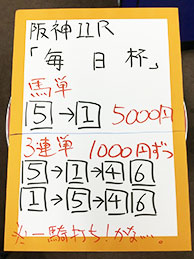 阪神11R
「毎日杯」
馬単
5→1 5000円
3連単 1000円ずつ
5→1→4 6
1→5→4 6
※一騎打ち!かな…。